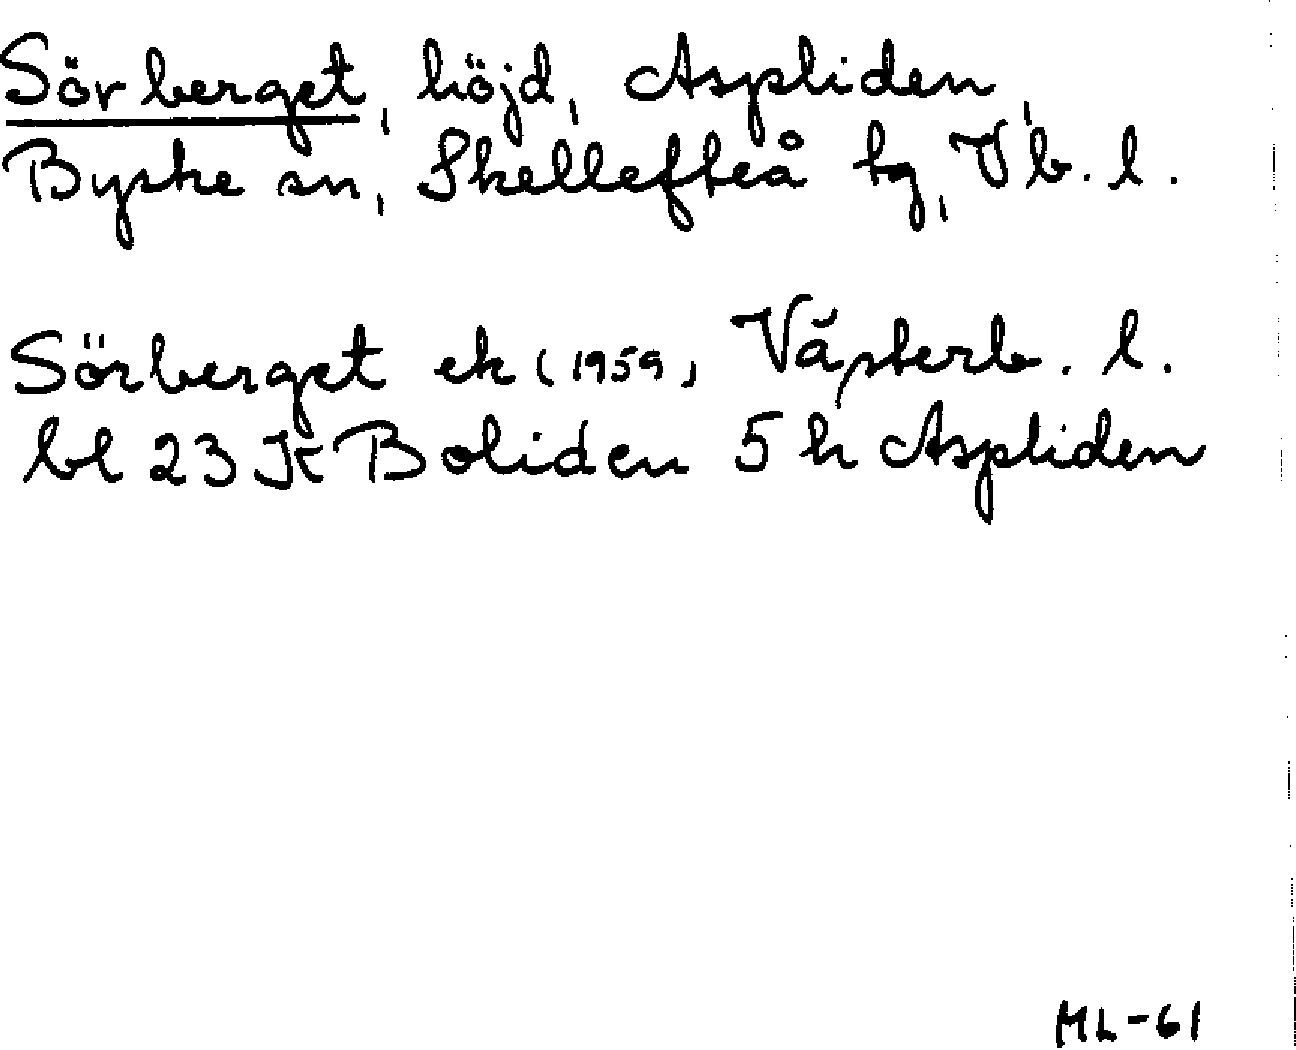 Sörberget, höjd, Aspliden,
Byske sn, Skellefteå tg, Vb. l.
Sörberget ek (1959) Västerb. l.
bl 23 K Boliden 5 h Aspliden
ML-61